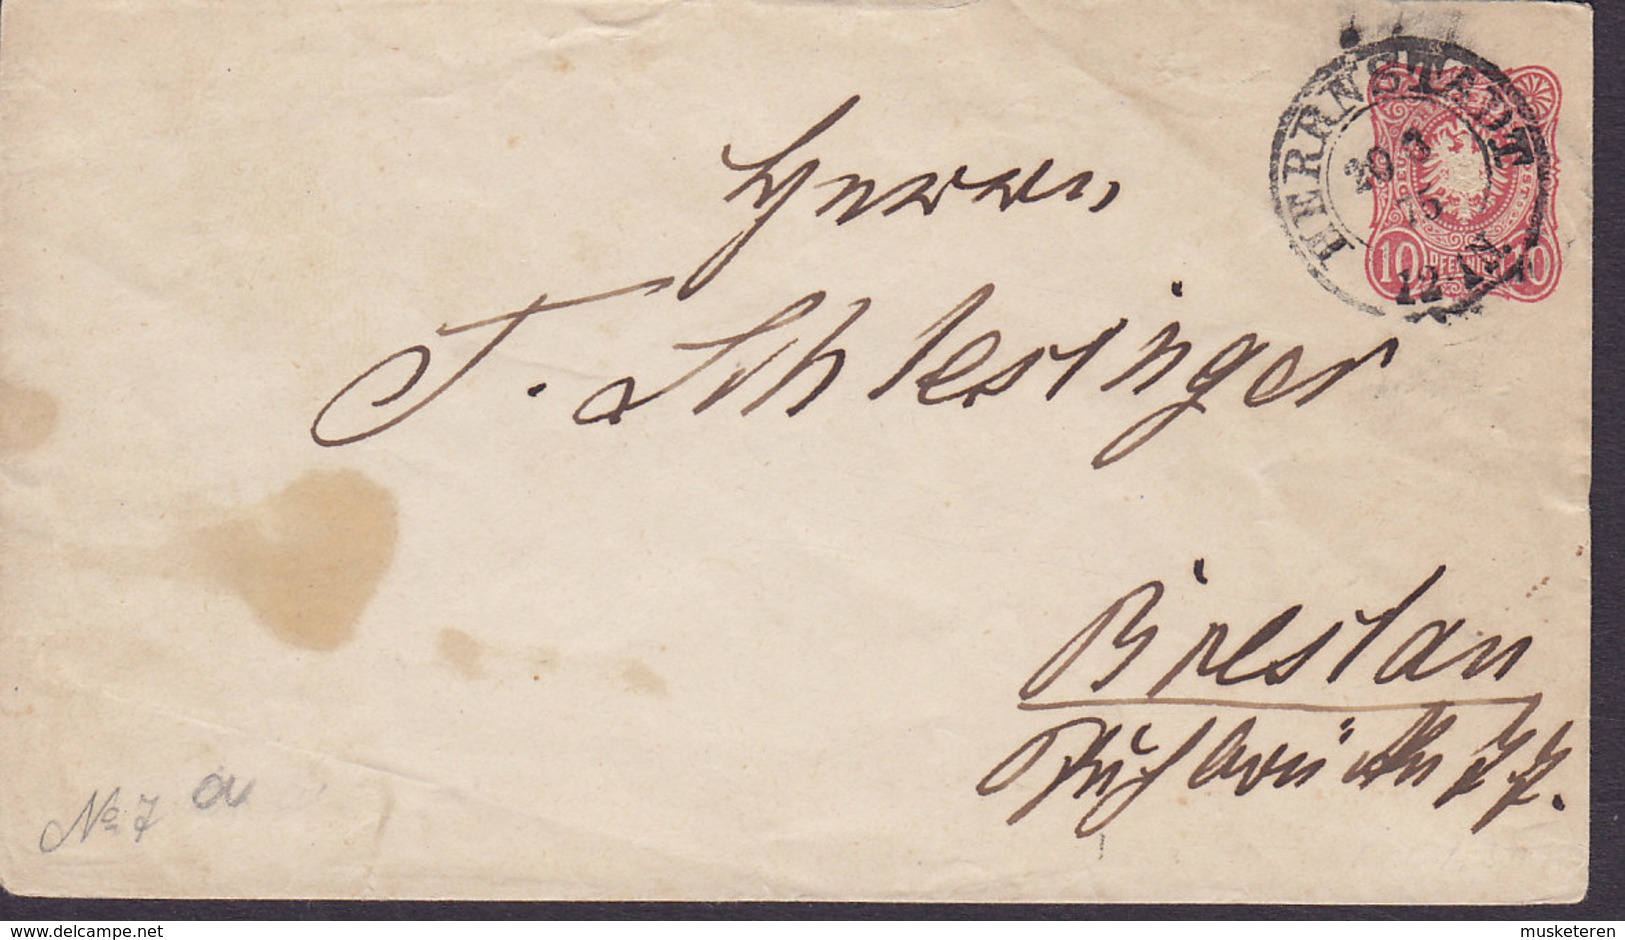 HERRNSTADT
20 3
12-1N.
10 PFENNIG 10
Herrn
T. Schlesinger
Breslau
77.
No 7 a
delcampe.net
musketeren